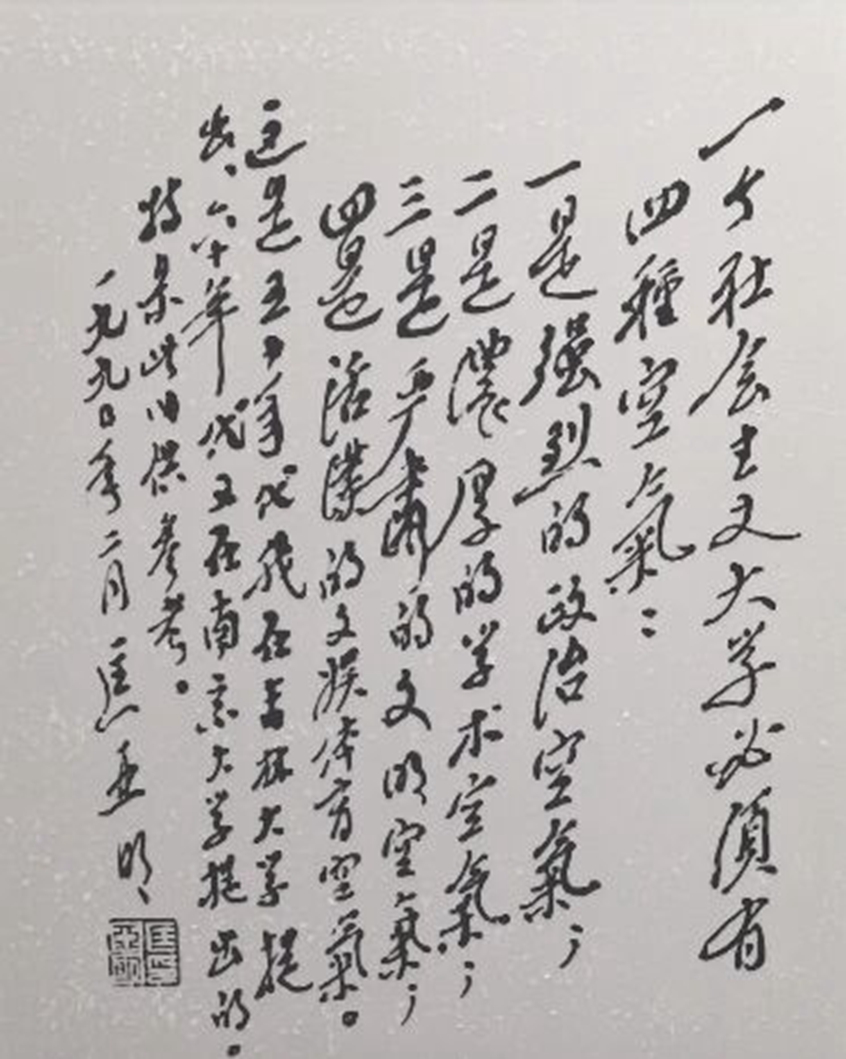 一个社会主义大学必须有
四種空氣：
一是强烈的政治空氣；
二是濃厚的学术空氣；
三是严肅的文明空氣；
四是活潑的文娱体育空氣。
这是五十年代我在吉林大学提
出、六十年代又在南京大学提出的。
特录此以供参考。
一九九〇年二月 匡亚明
匡亚明